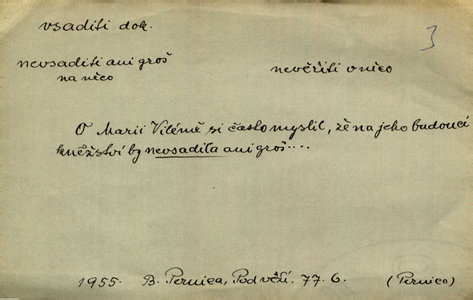 vsaditi dok.
3
nevsaditi ani groš
na něco
nevěřiti v něco
O Marii Vilémě si často myslil, že na jeho budoucí
kněžství by nevsadila ani groš....
1955. B. Pernica, Pod věží. 77. 6. (Pernica)